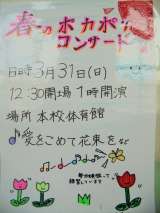 春のポカポカ
コンサート
日時3月31日(日)
12:30開場1時開演
場所 本校体育館
愛をこめて花束を など